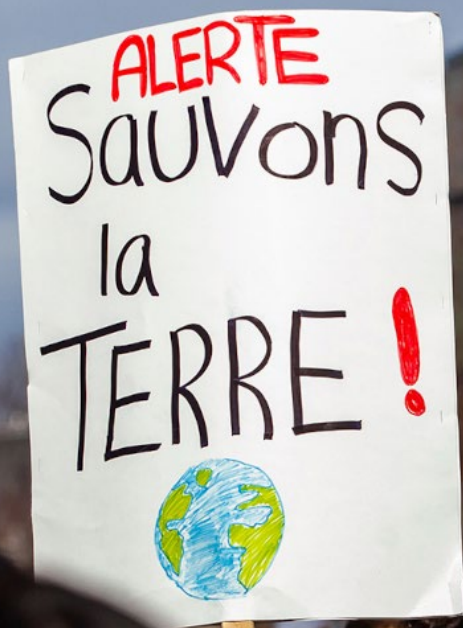 ALERTE
Sauvons
la
TERRE!